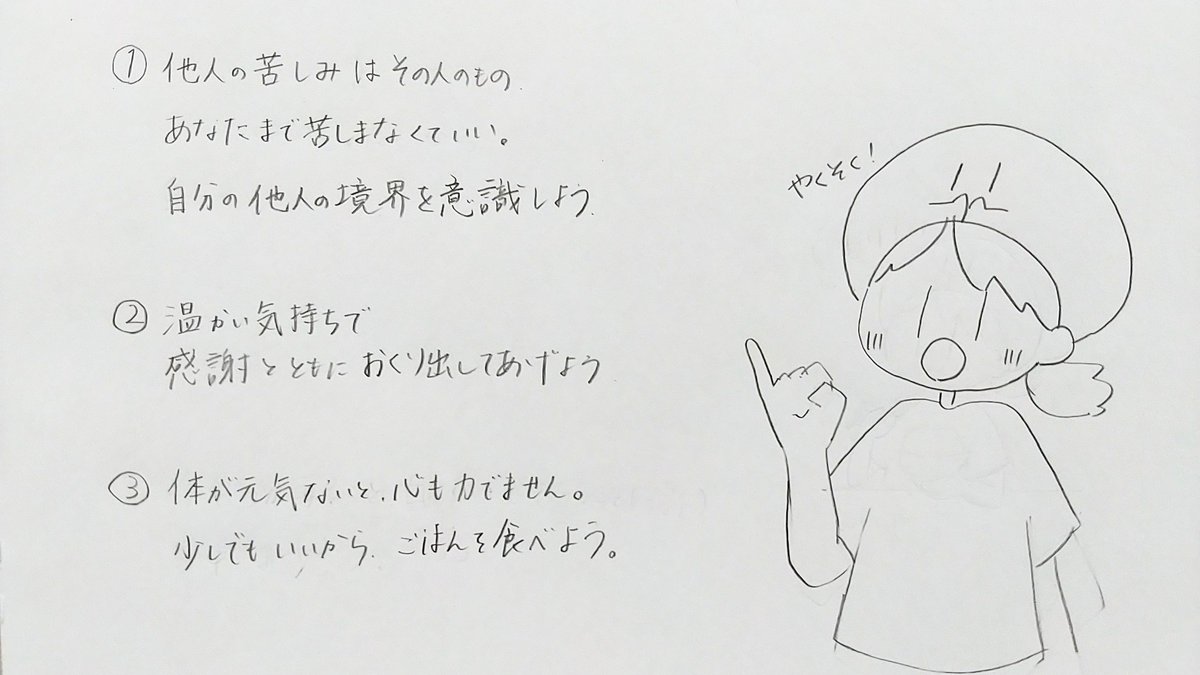 ① 他人の苦しみはその人のもの.
あなたまで苦しまなくていい。
自分の他人の境界を意識しよう.
② 温かい気持ちで
感謝とともにおくり出してあげよう
③ 体が元気ないと、心も力でません。
少しでもいいから、ごはんを食べよう。
やくそく!